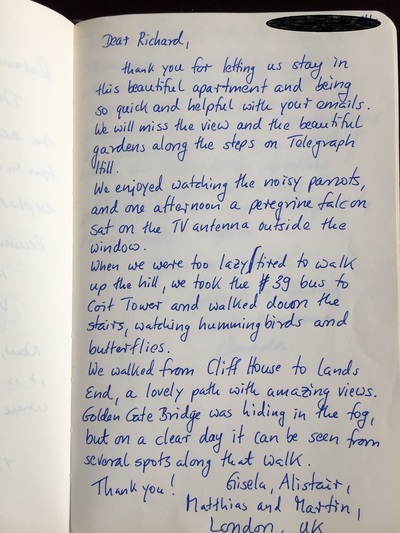 Dear Richard,
thank you for letting us stay in
this beautiful apartment and being
so quick and helpful with your emails.
We will miss the view and the beautiful
gardens along the steps on Telegraph
Hill.
We enjoyed watching the noisy parrots,
and one afternoon a peregrine falcon
sat on the TV antenna outside the
window.
When we were too lazy/tired to walk
up the hill, we took the #39 bus to
Coit Tower and walked down the
stairs, watching hummingbirds and
butterflies.
We walked from Cliff House to Lands
End, a lovely path with amazing views.
Golden Gate Bridge was hiding in the fog,
but on a clear day it can be seen from
several spots along that walk.
Thank you! Gisela, Alistair,
Matthias and Martin,
London, UK